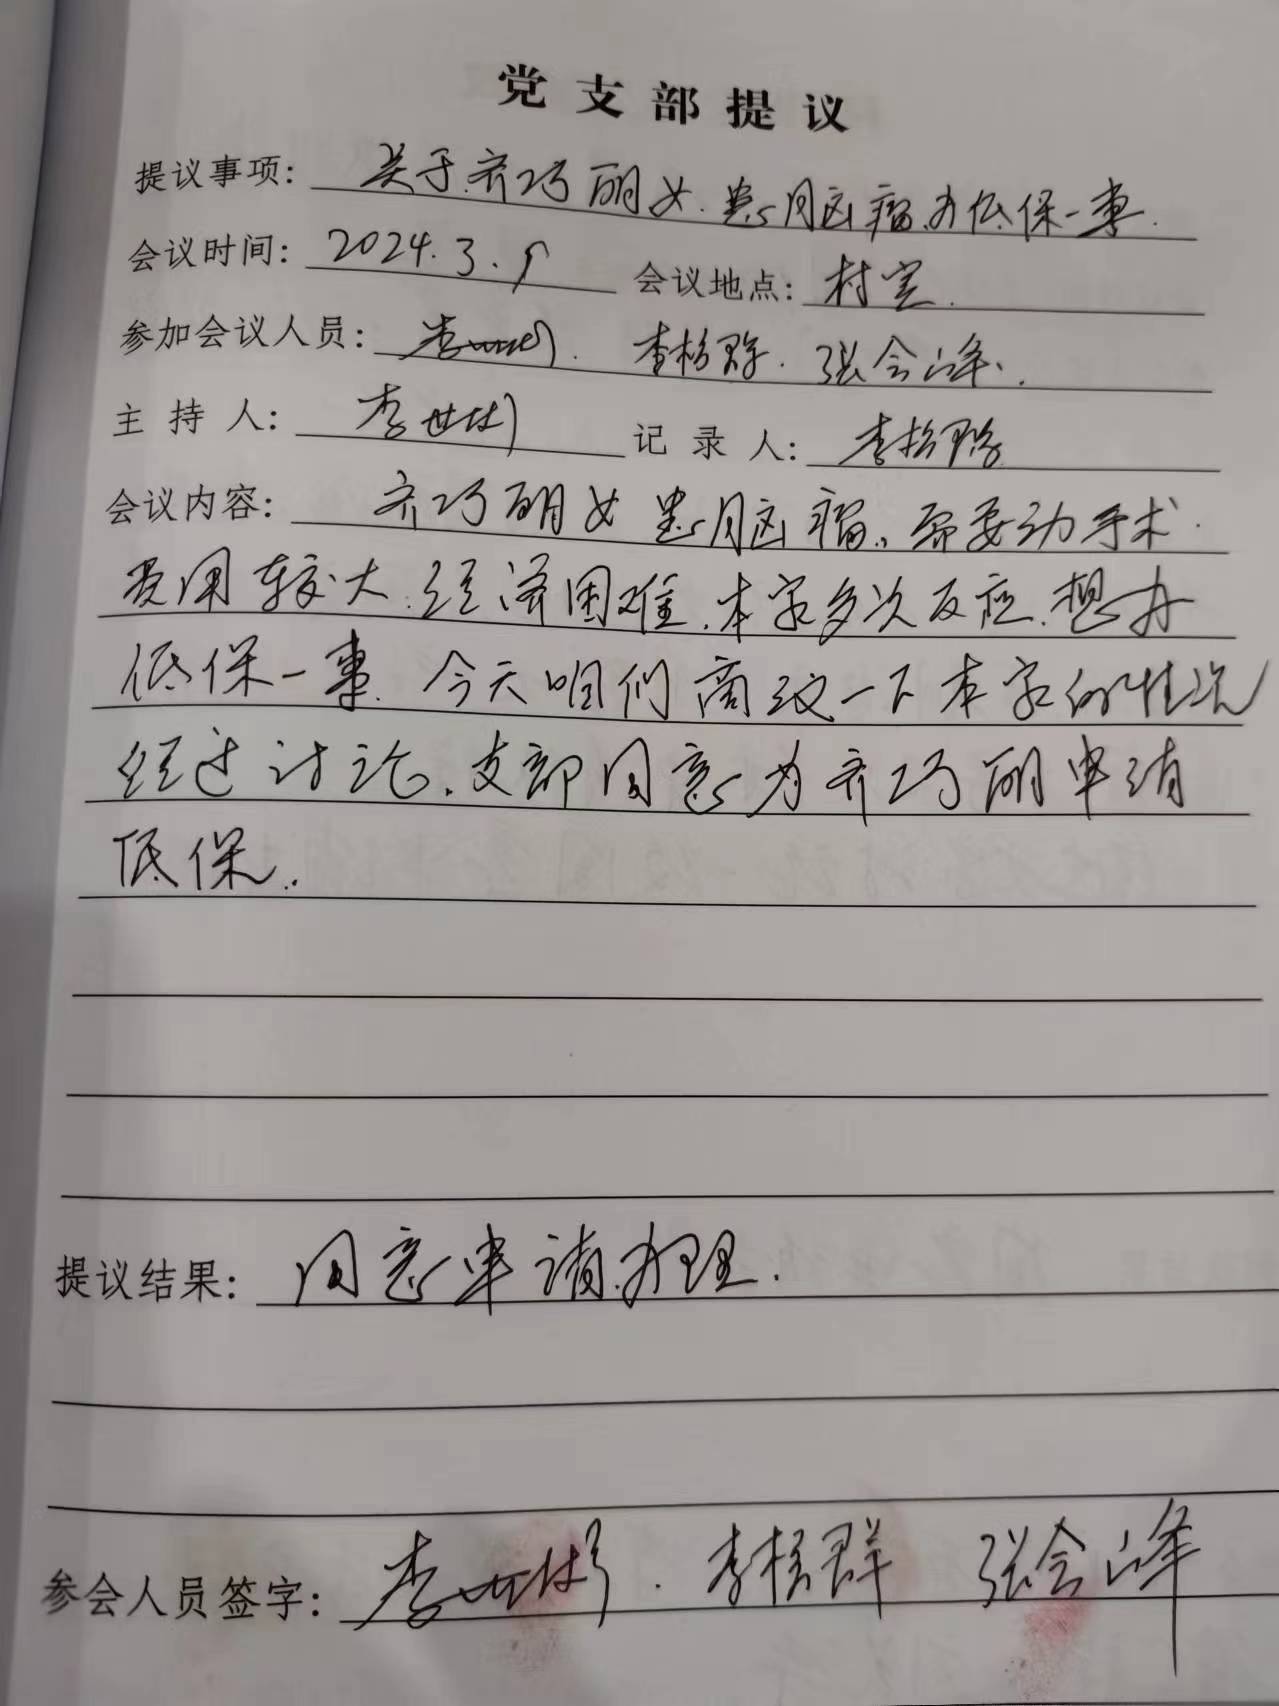 党支部提议
提议事项: 关于齐巧丽女.患脑瘤.办低保一事.
会议时间: 2024.3.9 会议地点: 村室.
参加会议人员: 李世彬. 李松群. 张会峰.
主持人: 李世彬 记录人: 李松群
会议内容: 齐巧丽女患脑瘤.需要动手术.
费用较大.经济困难.本家多次反应.想办
低保一事.今天咱们商议一下本家的情况
经过讨论.支部同意为齐巧丽申请
低保.
提议结果: 同意申请办理.
参会人员签字: 李世彬. 李松群 张会峰